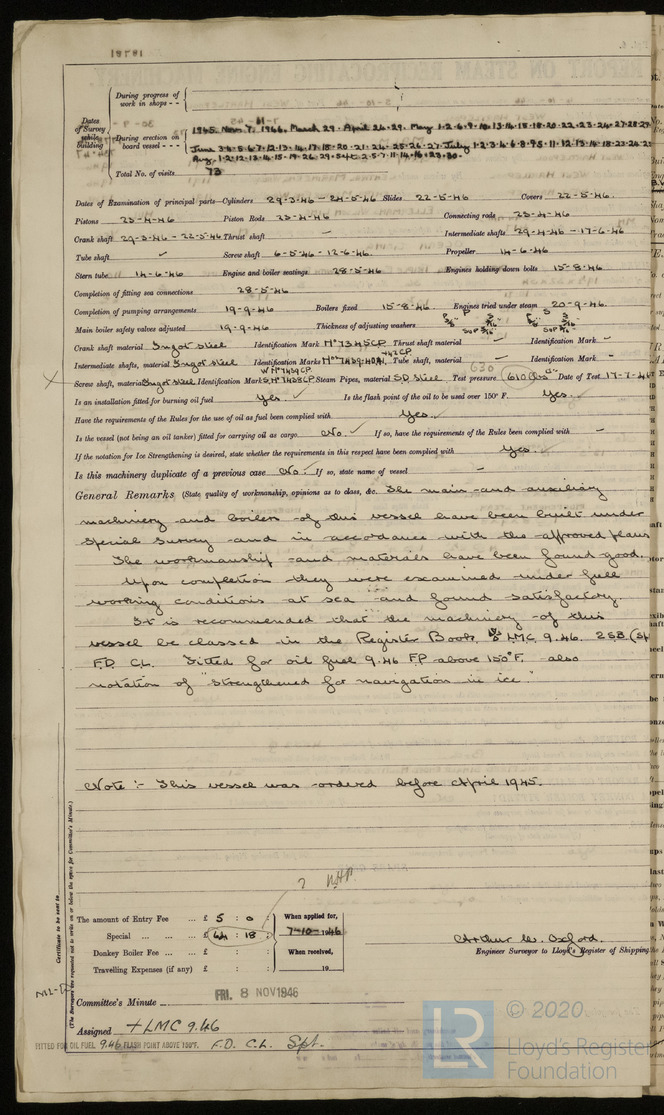 During progress of work in shops - -
Dates of Survey while building
During erection on board vessel - - -
1945. Nov. 7. 1946. March 29 - April 26 - 29. May 1-2-6-9-10-13-14-15-18-20-22-23-24-27-28-29
Total No. of visits 73
Dates of Examination of principal parts—Cylinders 29-3-46 - 24-5-46 Slides 22-5-46 Covers 22-5-46.
Pistons 23-4-46 Piston Rods 23-4-46 Connecting rods 23-4-46
Crank shaft 29-3-46 - 22-5-46 Thrust shaft - Intermediate shafts 29-4-46 - 17-6-46
Tube shaft Screw shaft 6-5-46 - 12-6-46. Propeller 14-6-46
Stern tube 14-6-46 Engine and boiler seatings 28-5-46 Engines holding down bolts 15-8-46
Completion of fitting sea connections 28-5-46
Completion of pumping arrangements 19-9-46 Boilers fixed 15-8-46 Engines tried under steam 20-9-46.
Main boiler safety valves adjusted 19-9-46 Thickness of adjusting washers
Crank shaft material Ingot Steel Identification Mark No 7345CP Thrust shaft material - Identification Mark -
Intermediate shafts, material Ingot Steel Identification Marks Tube shaft, material - Identification Mark -
Screw shaft, material Ingot Steel Identification Mark Steam Pipes, material S.D. Steel Test pressure 610 lbs Date of Test 17-7-46
630
Is an installation fitted for burning oil fuel Yes. Is the flash point of the oil to be used over 150° F. Yes.
Have the requirements of the Rules for the use of oil as fuel been complied with Yes.
Is the vessel (not being an oil tanker) fitted for carrying oil as cargo No. If so, have the requirements of the Rules been complied with -
If the notation for Ice Strengthening is desired, state whether the requirements in this respect have been complied with Yes.
Is this machinery duplicate of a previous case No. If so, state name of vessel -
General Remarks. (State quality of workmanship, opinions as to class, &c. The main and auxiliary
machinery and boilers of this vessel have been built under
Special Survey and in accordance with the approved plans
The workmanship and materials have been found good.
Upon completion they were examined under full
working conditions at sea and found satisfactory.
It is recommended that the machinery of this
vessel be classed in the Register Book LMC 9.46. 2SB (Spt
F.D. C.L. Fitted for oil fuel 9.46 F.P. above 150°F. also
notation of "Strengthened for navigation in ice."
Note :- This vessel was ordered before April 1945.
? NHP
The amount of Entry Fee ... £ 5 : 0 : When applied for,
Special ... ... ... £ 44 : 18 : 7-10-1946
Donkey Boiler Fee ... £ : : When received,
Travelling Expenses (if any) £ : : 19
Arthur W. Oxford.
Engineer Surveyor to Lloyd's Register of Shipping.
Certificate to be sent to
(The Surveyors are requested not to write on or below the space for Committee's Minute.)
Committee's Minute FRI. 8 NOV 1946
Assigned + LMC 9.46
FITTED FOR OIL FUEL 9.46 FLASH POINT ABOVE 150°F. F.D. C.L. Spt.
LR
© 2020
Lloyd's Register
Foundation